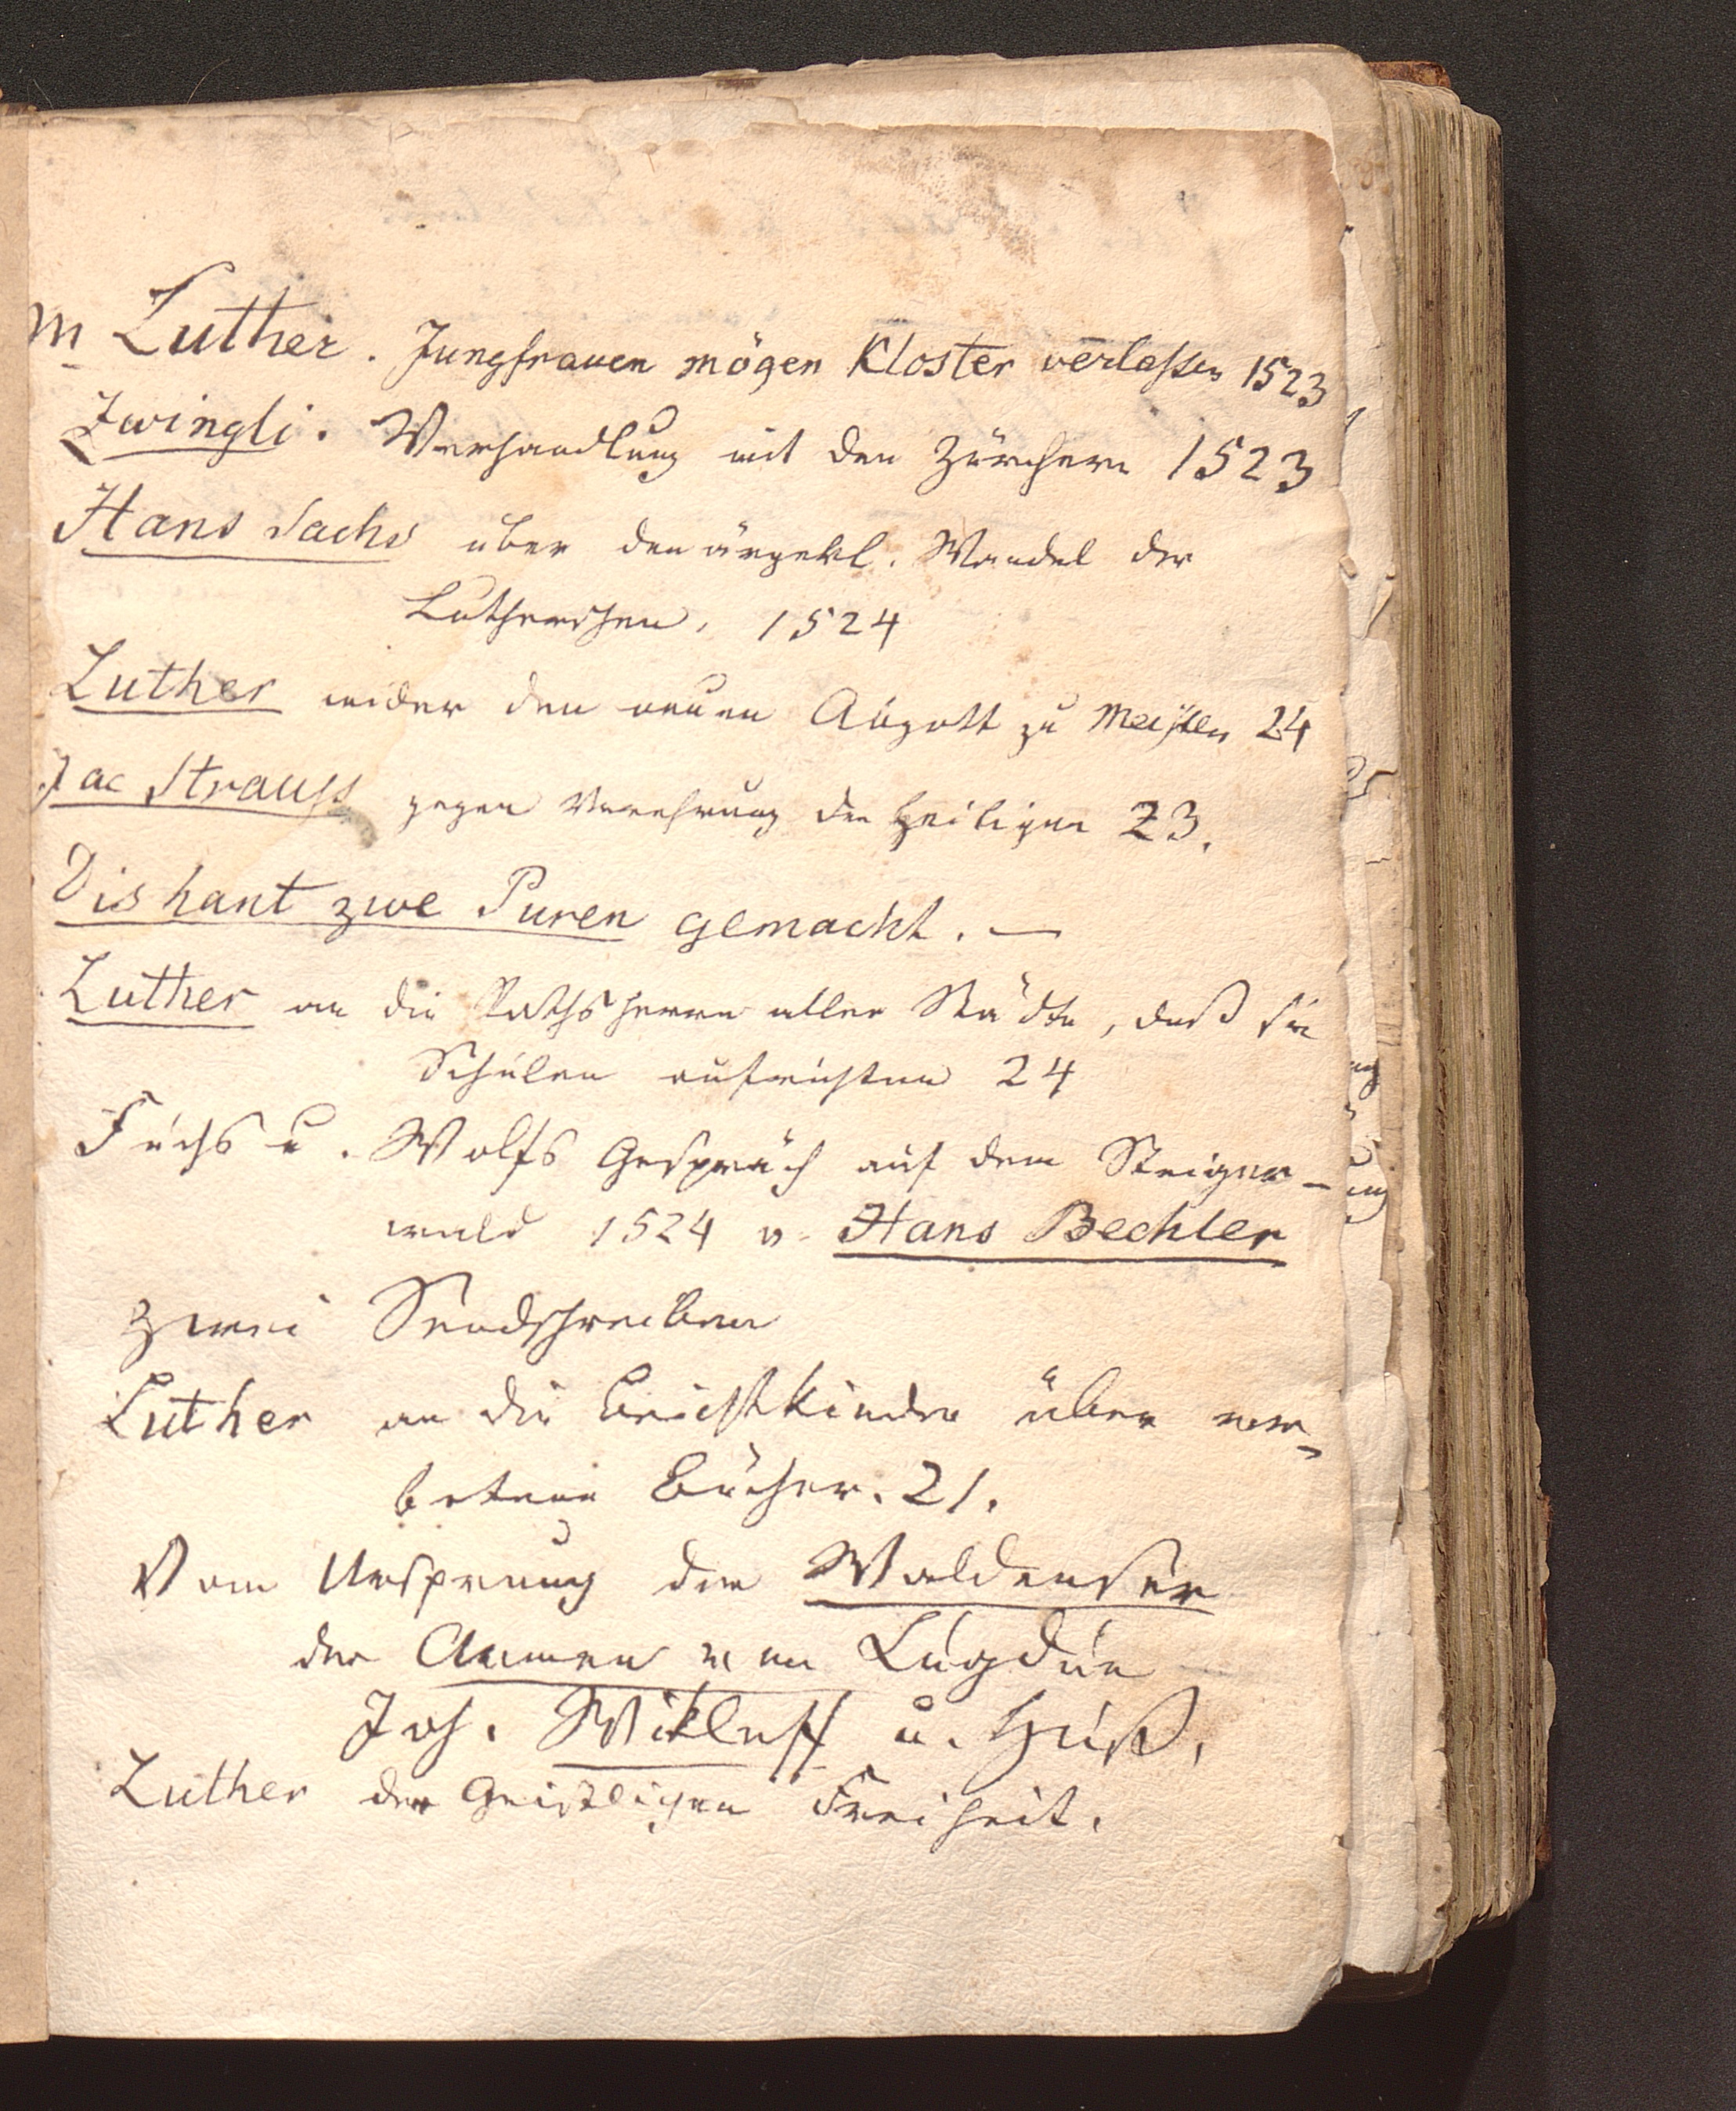 M Luther. Jungfrauen mögen Kloster verlassen 1523
Zwingli. Verhandlung mit den Zürchern 1523
Hans Sachs über den ärgerl. Wandel der
Lutherischen, 1524
Luther wider den neuen Abgott zu Meißen 24
Jac Strauss gegen Verehrung der Heiligen 23.
Dis hant zwe Puren gemacht. —
Luther an die Rathsherrn aller Städte, daß sie
Schulen aufrichten 24
Fuchs u. Wolfs Gespräch auf dem Steiger-
wald 1524 v. Hans Bechler
zwei Sendschreiben
Luther an die Beichtkinder über ver-
botene Bücher. 21.
Vom Ursprung der Waldenser
der Armen von Lugdun
Joh. Wikleff u. Huß.
Luther der Geistlichen Freiheit.